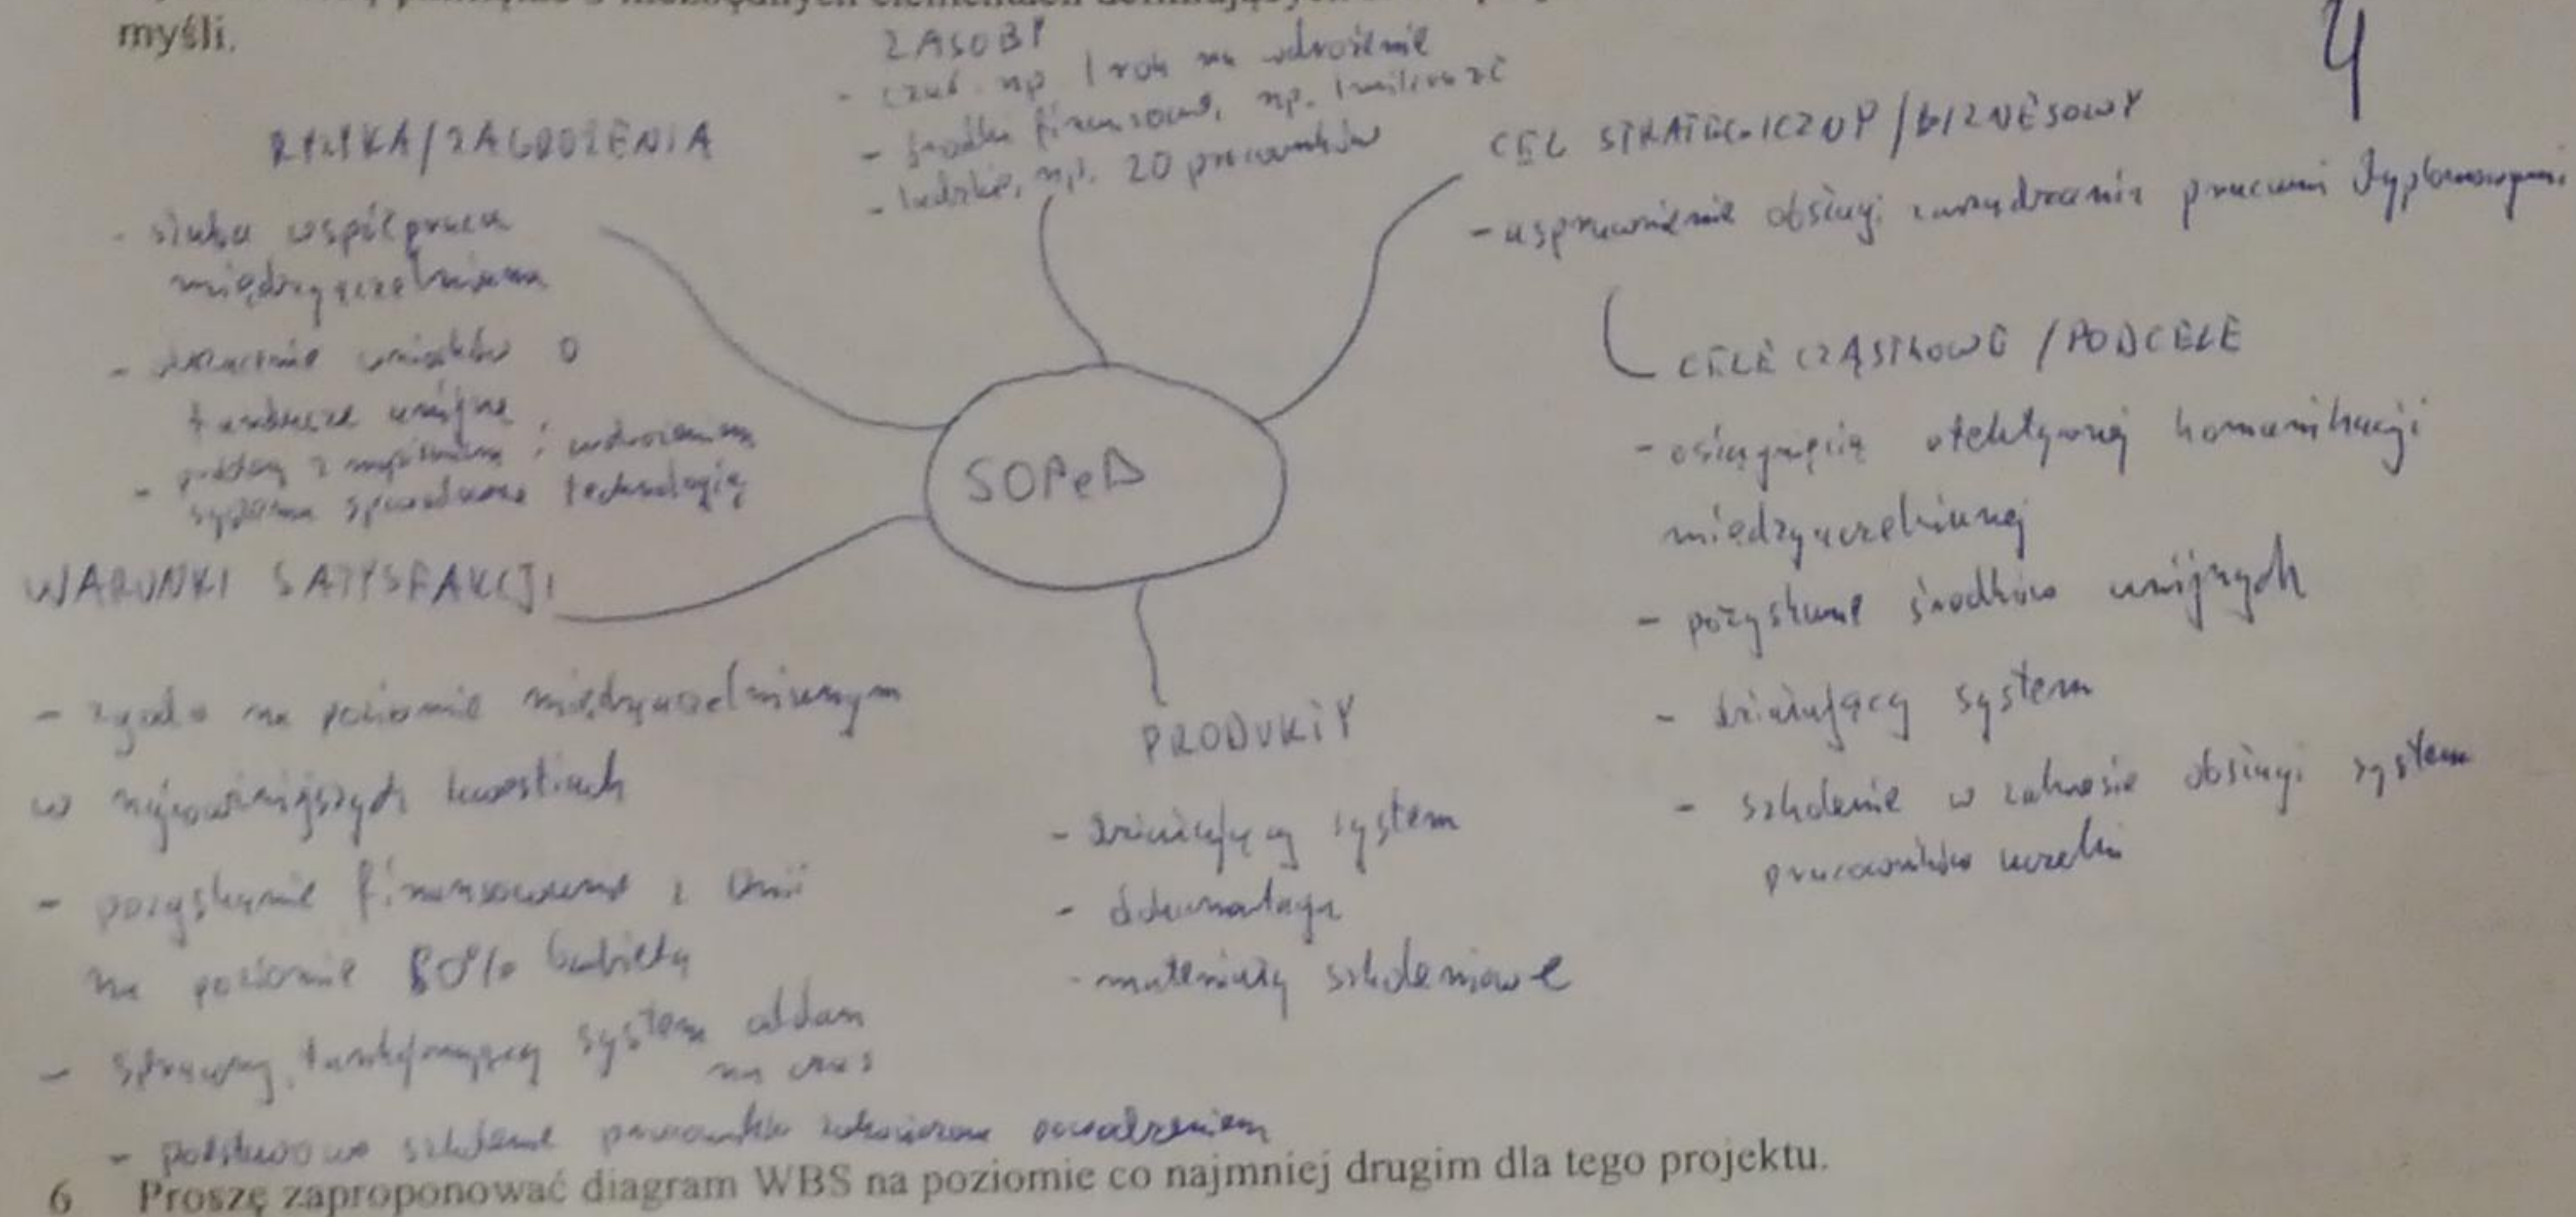 myśli.
4
ZASOBY
- czas np 1 rok na wdrożenie
- środki finansowe, np. 1 milion zł
- ludzkie, np. 20 pracowników
RYZYKA/ZAGROŻENIA
- słaba współpraca
międzyuczelniana
- wniosków o
fundusze unijne
- i wdrożeniem
systemu spowodowane technologią
CEL STRATEGICZNY/BIZNESOWY
- usprawnienie obsługi zarządzania pracami dyplomowymi
CELE CZĄSTKOWE/PODCELE
- osiągnięcie efektywnej komunikacji
międzyuczelnianej
- pozyskanie środków unijnych
- działający system
- szkolenie w zakresie obsługi system
pracowników uczelni
SOPeD
WARUNKI SATYSFAKCJI
- zgoda na poziomie międzyuczelnianym
w najważniejszych kwestiach
- pozyskanie finansowania z Unii
na poziomie 80% budżetu
- sprawny, funkcjonujący system oddan
na czas
- podstawowe szkolenie pracowników zakończone powodzeniem
PRODUKTY
- działający system
- dokumentacja
- materiały szkoleniowe
6 Proszę zaproponować diagram WBS na poziomie co najmniej drugim dla tego projektu.